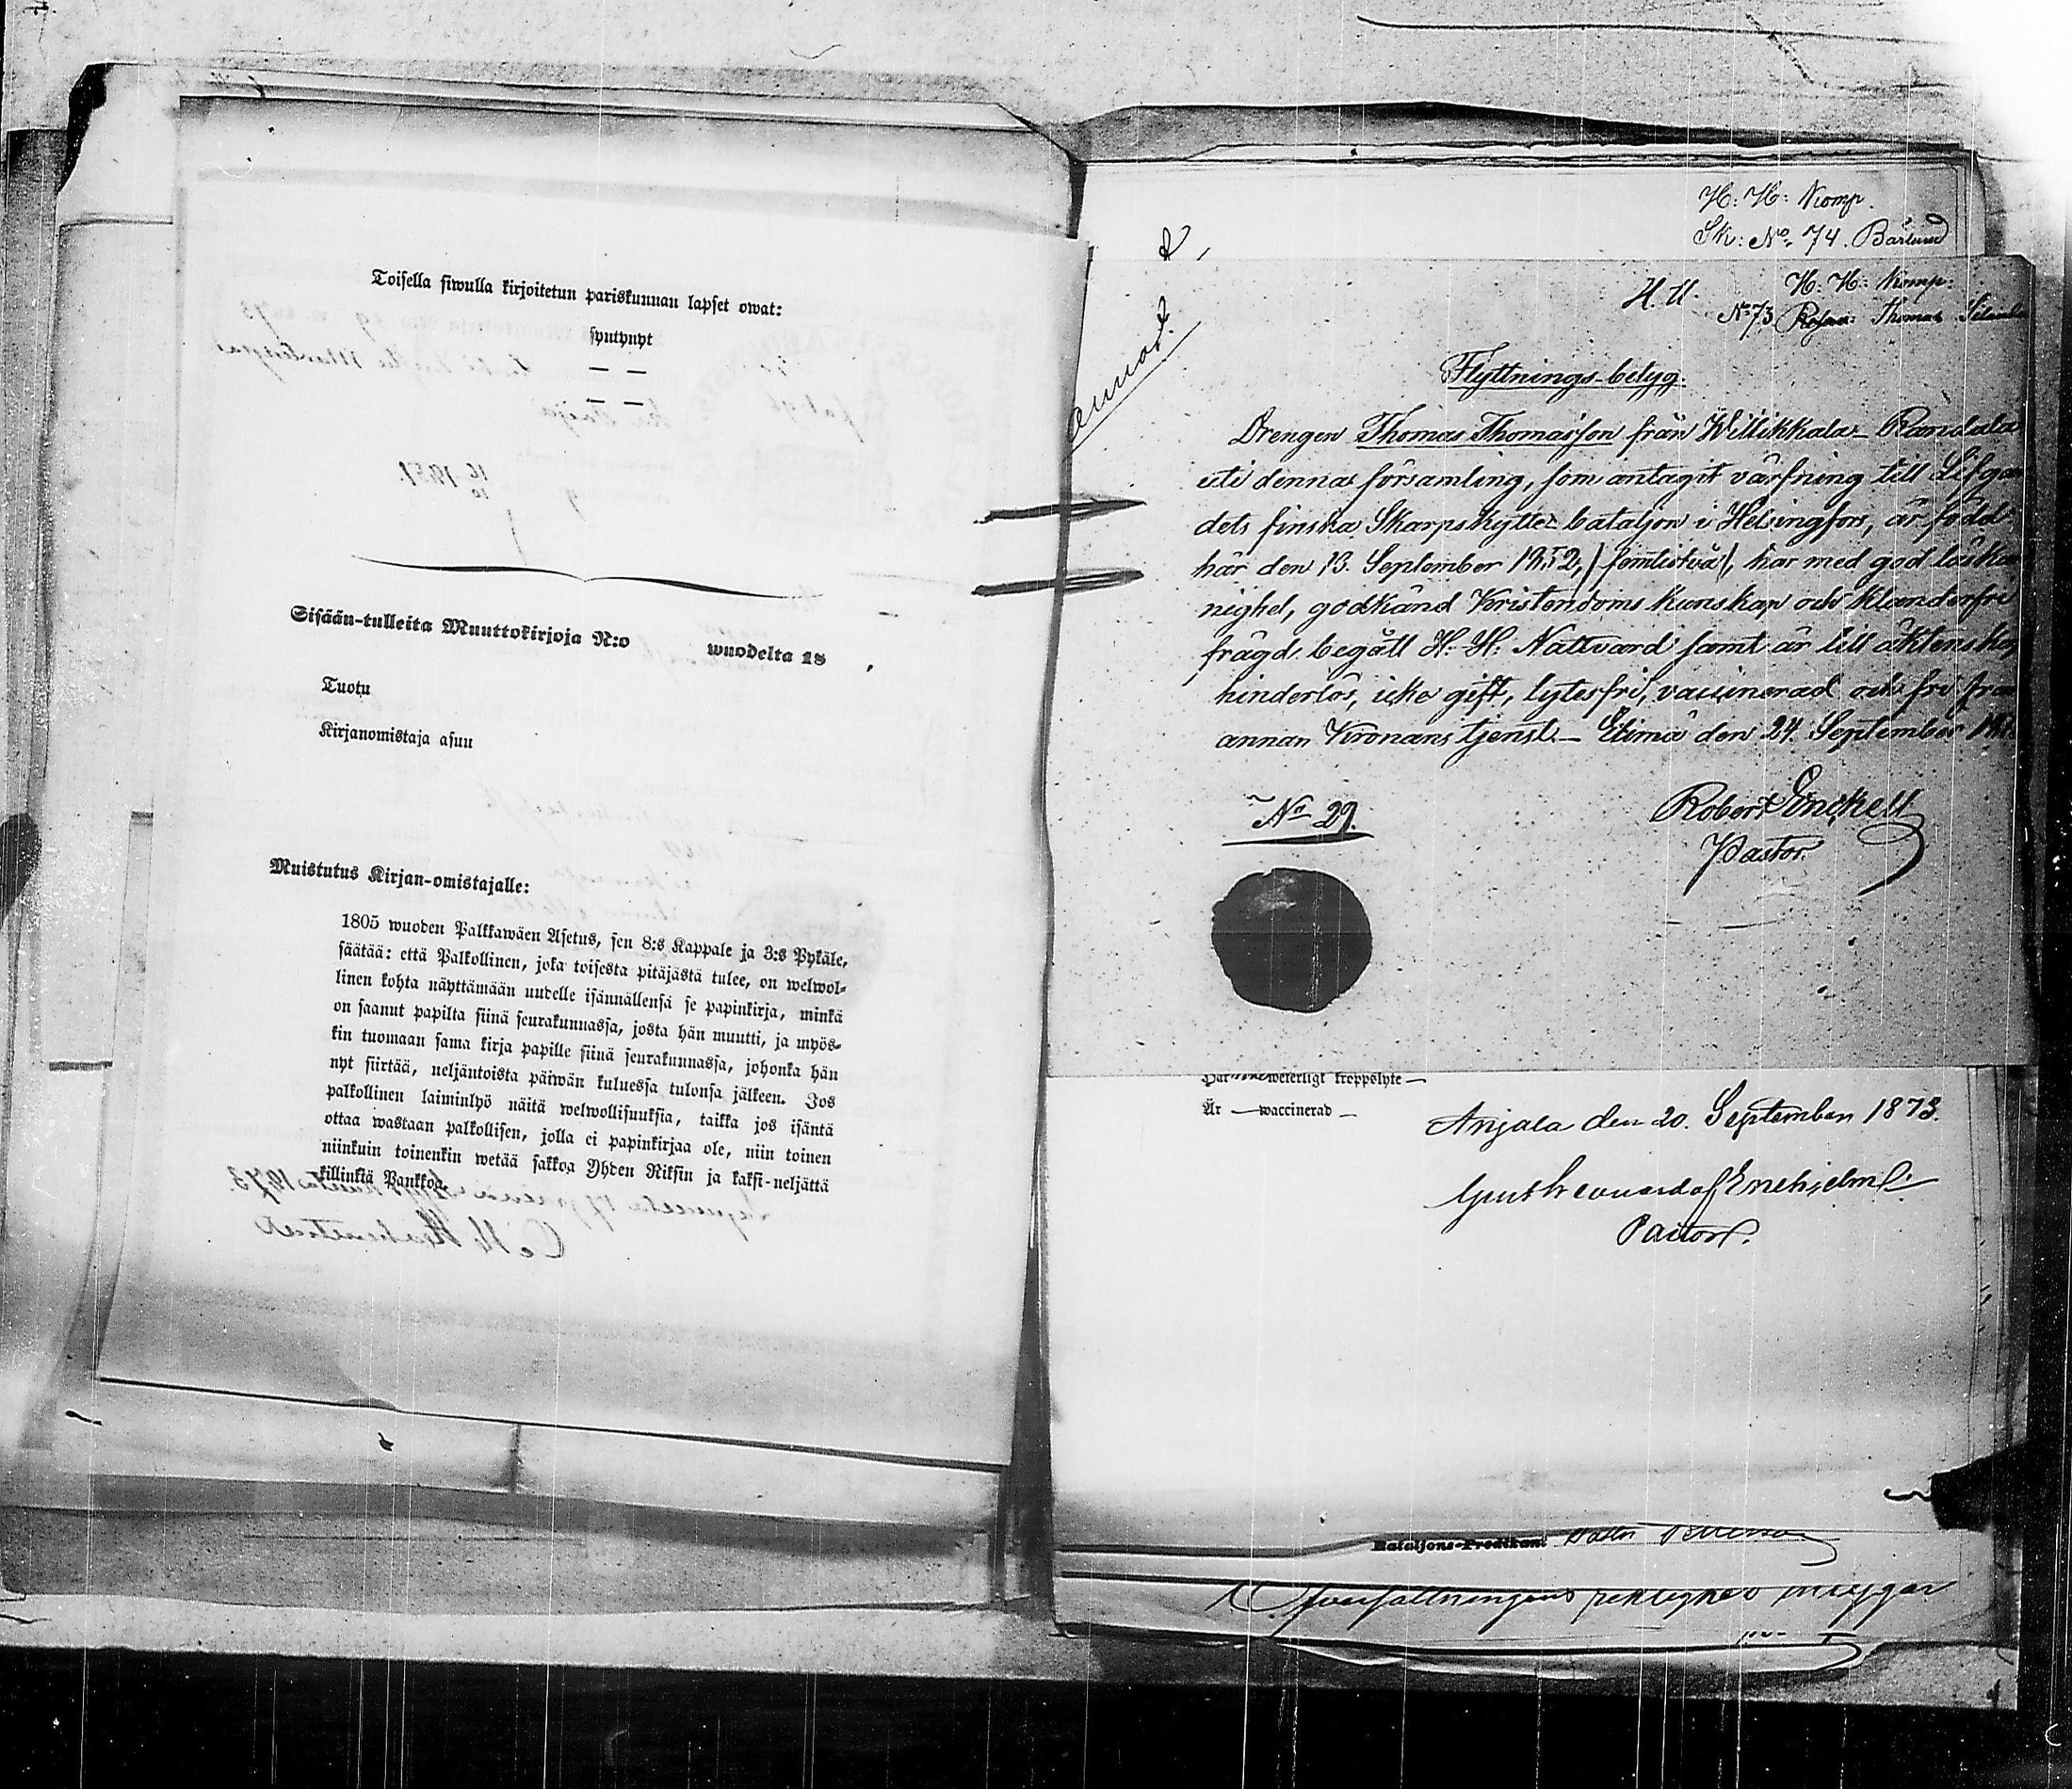 Toisella siwulla kirjoitetun pariskunnan lapset owat:
syntynyt
— —
— —
Sisään-tulleita Muuttokirjoja N:o wuodelta 18 ,
Tuotu
Kirjanomistaja asuu
Muistutus Kirjan-omistajalle:
1805 wuoden Palkkawäen Asetus, sen 8:s Kappale ja 3:s Pykäle,
säätää: että Palkollinen, joka toisesta pitäjästä tulee, on welwol-
linen kohta näyttämään uudelle isännällensä se papinkirja, minkä
on saanut papilta siinä seurakunnassa, josta hän muutti, ja myös-
kin tuomaan sama kirja papille siinä seurakunnassa, johonka hän
nyt siirtää, neljäntoista päiwän kuluessa tulonsa jälkeen. Jos
palkollinen laiminlyö näitä welwollisuuksia, taikka jos isäntä
ottaa wastaan palkollisen, jolla ei papinkirjaa ole, niin toinen
niinkuin toinenkin wetää sakkoa Yhden Riksin ja kaksi-neljättä
killinkiä Pankkoa.
H: H: Nkomp.
Sk: No 74. Bärlund
H. U. H: H: Nkomp:
No 73 Thomas
Flyttnings-betyg.
Drengen Thomas Thomasson från Willikkala Randala
uti denna församling, som antagit värfning till Lifgar
dets finska Skarpskytte bataljon i Helsingfors, är född
här den 13. September 1852, /femtiotvå/, har med god läskun
nighet, godkänd Kristendoms kunskap och klanderfri
frägd begått H: H: Nattvard samt är till äktenskap
hinderlös, icke gift, lytesfri, vaccinerad och fri från
annan Kronans tjenst. — Elimä den 24 September
No 29.
Robert Enckell
Pastor.
weterligt kroppslyte —
Är — waccinerad —
Anjala den 20. September 1873.
af Enehjelm
Pastor.
Bataljons-Predikant